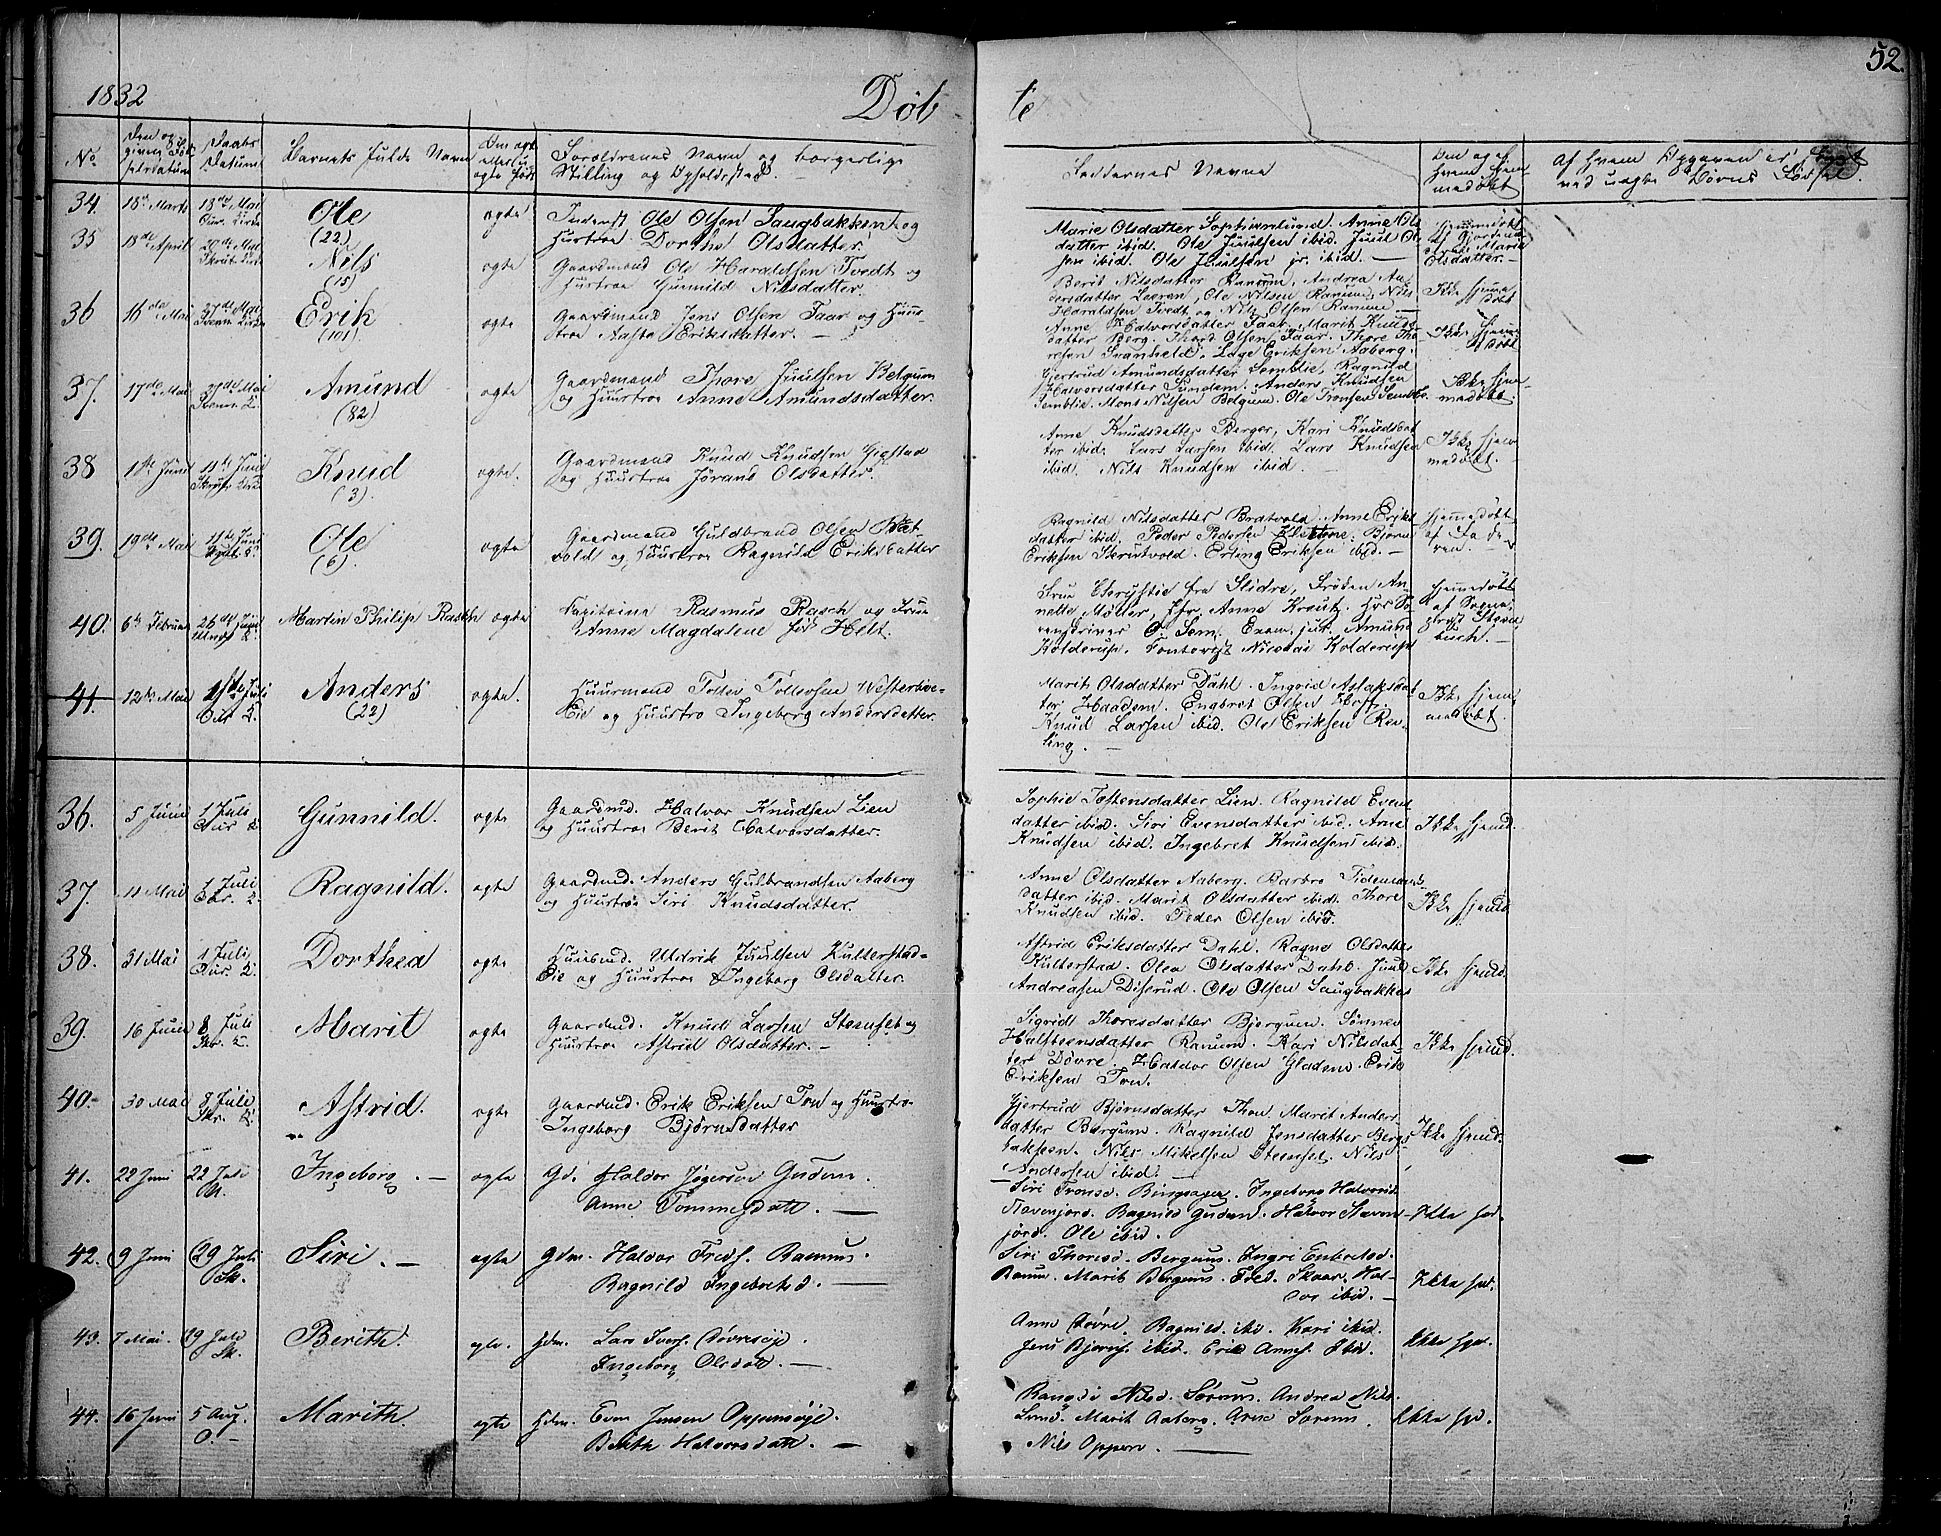 1832
Døbte
52.
No
Barnets fulde Navn
Forældrenes Navn og borgerlige
Stilling og Opholdssted.
Faddernes Navne
Af hvem Opgaven er skeet
ved uægte Børns Fødsel.
34. 18de Marts 18de Mai Aur. Kirke Ole (22) ægte Ole Olsen Haugbakken og
Hustroe Dorthe Olsdatter.
Marie Olsdatter Sophiamlund. Anne Ols-
datter ibid. Ole Juulsen ibid. Juul Ol-
sen ibid. Ole Juulsen jr. ibid. —
Hjemmedøbt af Marit Olsdatter. —
35 18de April Skrut. Kirke Nils (15) ægte Gaardmand Ole Haraldsen Tvedt og
Hustroe Gunnild Nilsdatter.
Berit Nilsdatter Ranum, Andrea An-
dersdatter Leeren, Ole Nilsen Ranum, Nils
Haraldsen Tvedt og Nils Olsen Ranum —
Ikke hjemme døbt
36 Mai 27de Mai Svenn. Kirke Erik (101) ægte Gaardmand Jens Olsen Faar og Huus-
troe Aaste Eriksdatter. —
Anne Halvorsdatter Faar, Marit Knuds-
datter Berg. Thord Olsen Faar. Thore Tho-
resen Svanheld. Lage Eriksen Aaberg.
Ikke hjemme døbt
37. 17de Mai 27de Mai Svenn. K. Amund (82) ægte Gaardmand Thore Juulsen Belgum
og Huustroe Anne Amundsdatter.
Gjertrud Amundsdatter Semblie, Ragnild
Halvorsdatter Sundem. Anders Knudsen
Semblie. Mons Nilsen Belgum. Ole Tronsen Semblie.
Ikke hjem-
medøbt.
38 1ste Juni 11te Juni Skrut. Kirke Knud (3). ægte. Gaardmand Knud Knudsen Gigstad
og Huustroe Jørand Olsdatter.
Anne Knudsdatter Berger, Kari Knudsdat-
ter ibid. Lars Larsen ibid. Lars Knudsen
ibid. Nils Knudsen ibid.
Ikke hjem-
medøbt. —
39. 19de Mai 11te Juni Ole (6). ægte Gaardmand Guldbrand Olsen Brat-
vold og Huustroe Ragnild Eriksdatter
Ragnild Nilsdatter Bratvold, Anne Eriks-
datter ibid. Peder Pedersen Bjørn
Eriksen Skrutvold. Erling Eriksen ibid. —
Hjemmedøbt
af Fade-
ren. —
40. 6te Februar 26de Juni Ulnæs K. Martin Philip Rasch ægte Capitaine Rasmus Rasch og Frue
Anne Magdalene fød Helt.
Frue fra Slidre, Frøken An-
nette Møller, Jfr. Anne Kraut. Hrs So-
renskriver O. Sem. Exam. jur. Amund
Kolderup. Nicolai Kolderup
Hjemmedøbt
af Sogne-
præst Steen-
buch. —
41. 12te Mai 1ste Juli Aur K. Anders (22) ægte. Huusmand Tollev Tollevsen Westerboe-
Eie og Huustro Ingeborg Andersdatter.
Marit Olsdatter Dahl. Ingrid Aslaksdat-
ter Haadem. Engbret Olsen Hoff.
Knud Larsen ibid. Ole Eriksen Ren-
ling. —
Ikke hjem-
medøbt.
36. 5 Juni 1 Juli Aur K Gunnild. ægte Gaardmd. Halvor Knudsen Lien
og Huustroe Berit Halvorsdatter.
Sophie Tostensdatter Lien. Ragnild Evens-
datter ibid. Siri Evensdatter ibid. Arne
Knudsen ibid. Ingebret Knudsen ibid.
Ikke hjemd.
37. 11 Mai 1 Juli Aur. K. Ragnild. ægte Gaardmd. Anders Gulbrandsen Aaberg
og Huustroe Siri Knudsdatter.
Anne Olsdatter Aaberg. Barbro Tidemands-
datter ibid. Marit Olsdatter ibid. Thore
Knudsen ibid. Peder Olsen ibid.
Ikke hjemd
38. 31 Mai 1 Juli Aur. K. Dorthea ægte Huusmd. Uldrik Juulsen Kulterstad-
Eie og Huustroe Ingeborg Olsdatter.
Astrid Eriksdatter Dahl. Ragne Olsdatter
Kulterstad. Olea Olsdatter Dahl. Juul
Andreasen Diserud. Ole Olsen Haugbakken
Ikke hjemd.
39. 16 Juni 8 Juli Skr. K. Marit ægte Gaardmd. Knud Larsen Stensæt og
Huustroe Astrid Olsdatter. —
Sigrid Thoresdatter Bjergum. Sønnev
Halsteensdatter Ranum. Kari Nilsdat-
ter Døvre. Haldor Olsen Gladem. Erik
Eriksen Ton.
Ikke hjemd.
40. 30 Mai 8 Juli Skr. K. Astrid. ægte Gaardmd. Erik Eriksen Ton og Huustro
Ingeborg Bjørnsdatter
Gjertrud Bjørnsdatter Thon. Marit Anders-
datter Bergum. Ragnild Jensdatter Berg-
bakken. Nils Mikelsen Steensæt. Nils
Andersen ibid. —
Ikke hjemd.
41. 22 Juni 22 Juli Ingeborg. — ægte Gd. Haldor Gudem.
Anne Tommesdatt. —
Siri Tronsd. Ingeborg Halvorsd.
Ragnild Gudem. Halvor
Ole ibid.
Ikke hjd.
42. 9 Juni 29 Juli Sk. Siri. — ægte Gdm. Haldor Fredf. Ranum.
Ragnild Ingebretsd. —
Siri Thoresd. Bergum. Ingri
Ranum. Marit Bergum. Fred. Skaar. Hal-
dor ibid. —
Ikke hjd.
43. 7 Mai. 29 Juli Sk. Berith. ægte. Hdm. Lars Iversf. Døvresøje.
Ingeborg Olsdatt. —
Anne Døvre. Ragnild ibid. Kari ibid.
Jens Bjørnsf. ibid. Erik Arnesf. ibid.
Ikke hjd.
44. 16 Juni 5 Aug. Marith. ægte Hdm. Even Jensen Oppensøje.
Berith Halvorsdatt. —
Rangdi Nilsd. Andrea Nils.
Lund. Marit Aaberg. Arne
Nils Oppen. —
Ikke hjd.